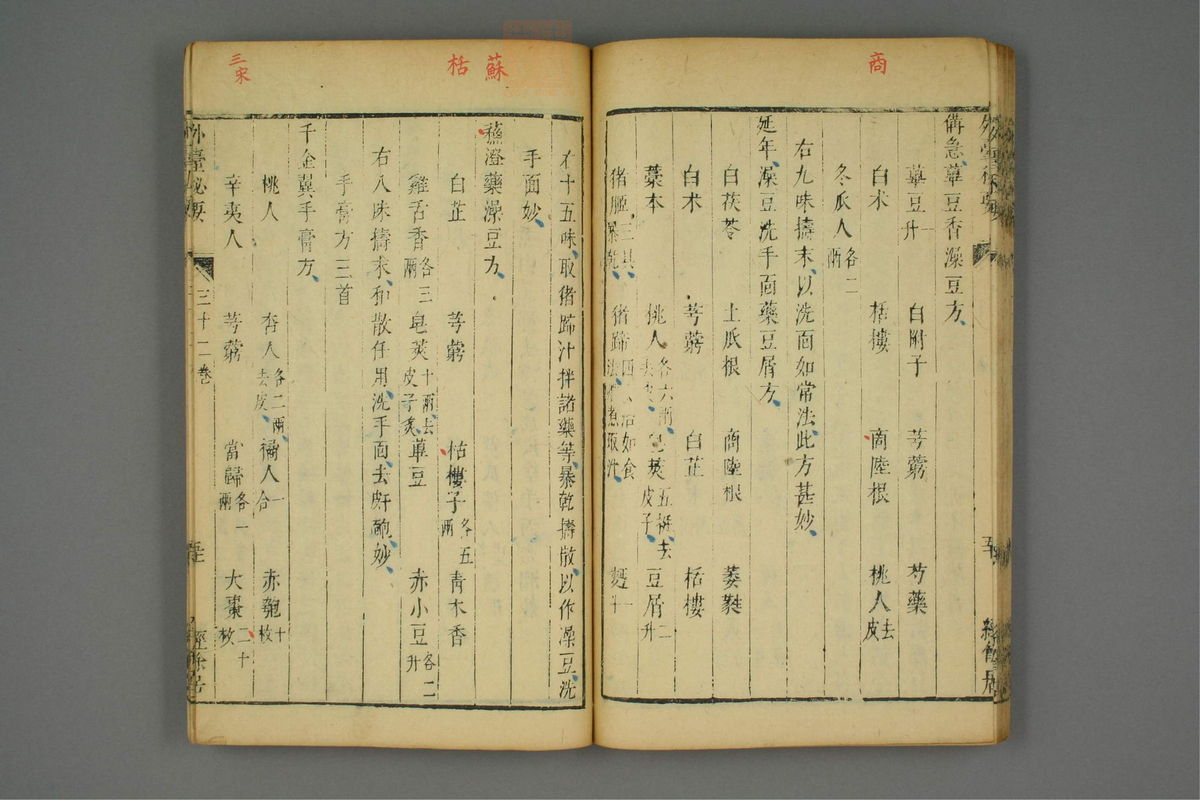 商
備急蓽豆香澡豆方
蓽豆一升 白附子 芎藭 芍藥
白朮 栝樓 商陸根 桃人去皮
冬瓜人各二兩
右九味擣末以洗面如常法此方甚妙
延年澡豆洗手面藥豆屑方
白茯苓 土瓜根 商陸根 萎蕤
白朮 芎藭 白芷 栝樓
藁本 桃人各六兩去皮 皂莢五挺去皮子 豆屑二升
猪胰三具暴乾 猪蹄四具治如食法煮取汁 麪一斗
蘇 栝
三 宋
右十五味取猪蹄汁拌諸藥等暴乾擣散以作澡豆洗
手面妙
蘓澄藥澡豆方
白芷 芎藭 栝樓子各五兩 青木香
雞舌香各三兩 皂莢十兩去皮子炙 蓽豆 赤小豆各二升
右八味擣末和散任用洗手面去皯䵟妙
手膏方三首
千金翼手膏方
桃人 杏人各二兩去皮 橘人一合 赤匏十枚
辛夷人 芎藭 當歸各一兩 大棗二十枚
外臺秘要 三十二卷 經餘居